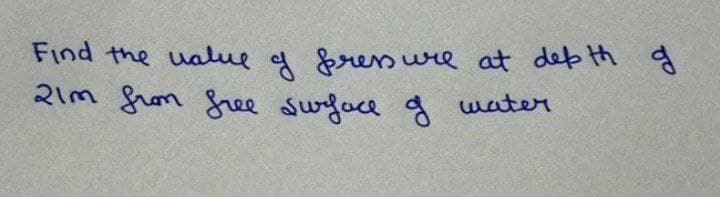 Find the value of pressure at depth of
21m from free surface of water